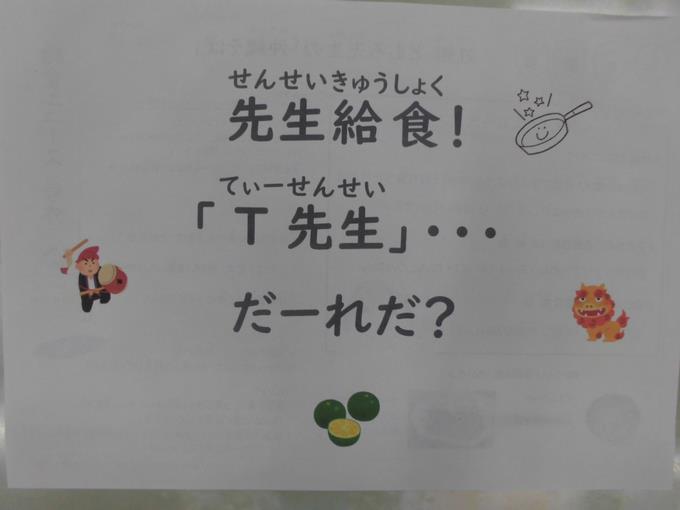 せんせいきゅうしょく
先生給食!
てぃーせんせい
「T先生」・・・
だーれだ?